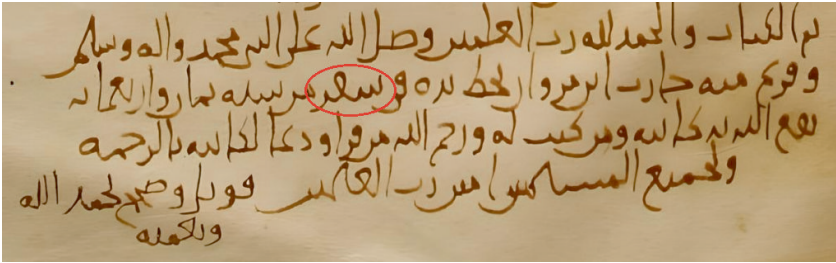 تم الكتاب والحمد لله رب العلمين وصلى الله على النبي محمد واله وسلم
وفرغ منه حارث ابن مروان بخط يده في شهر من سنه ثمان واربعمائه
نفع الله به كاتبه ومن كتب له ورحم الله من قرا ودعا لكاتبه بالرحمه
ولجميع المسلمين امين رب العلمين قوبل وصح بحمد الله
ونعمته